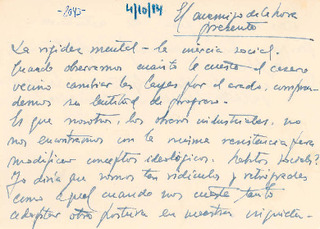 -2045-
4/10/84
El enemigo de la hora
presente
La rigidez mental - la inercia social.
Cuando observamos cuánto le cuesta el casero
vecino cambiar las layas por el arado, compren-
demos su lentitud de progreso.
Es que nosotros, los obreros industriales, no
nos encontramos con la misma resistencia para
modificar conceptos ideológicos, hábitos sociales?
Yo diría que somos tan ridículos y retrógrados
como aquel cuando nos cuesta tanto
adoptar otra postura en nuestras inquietu-